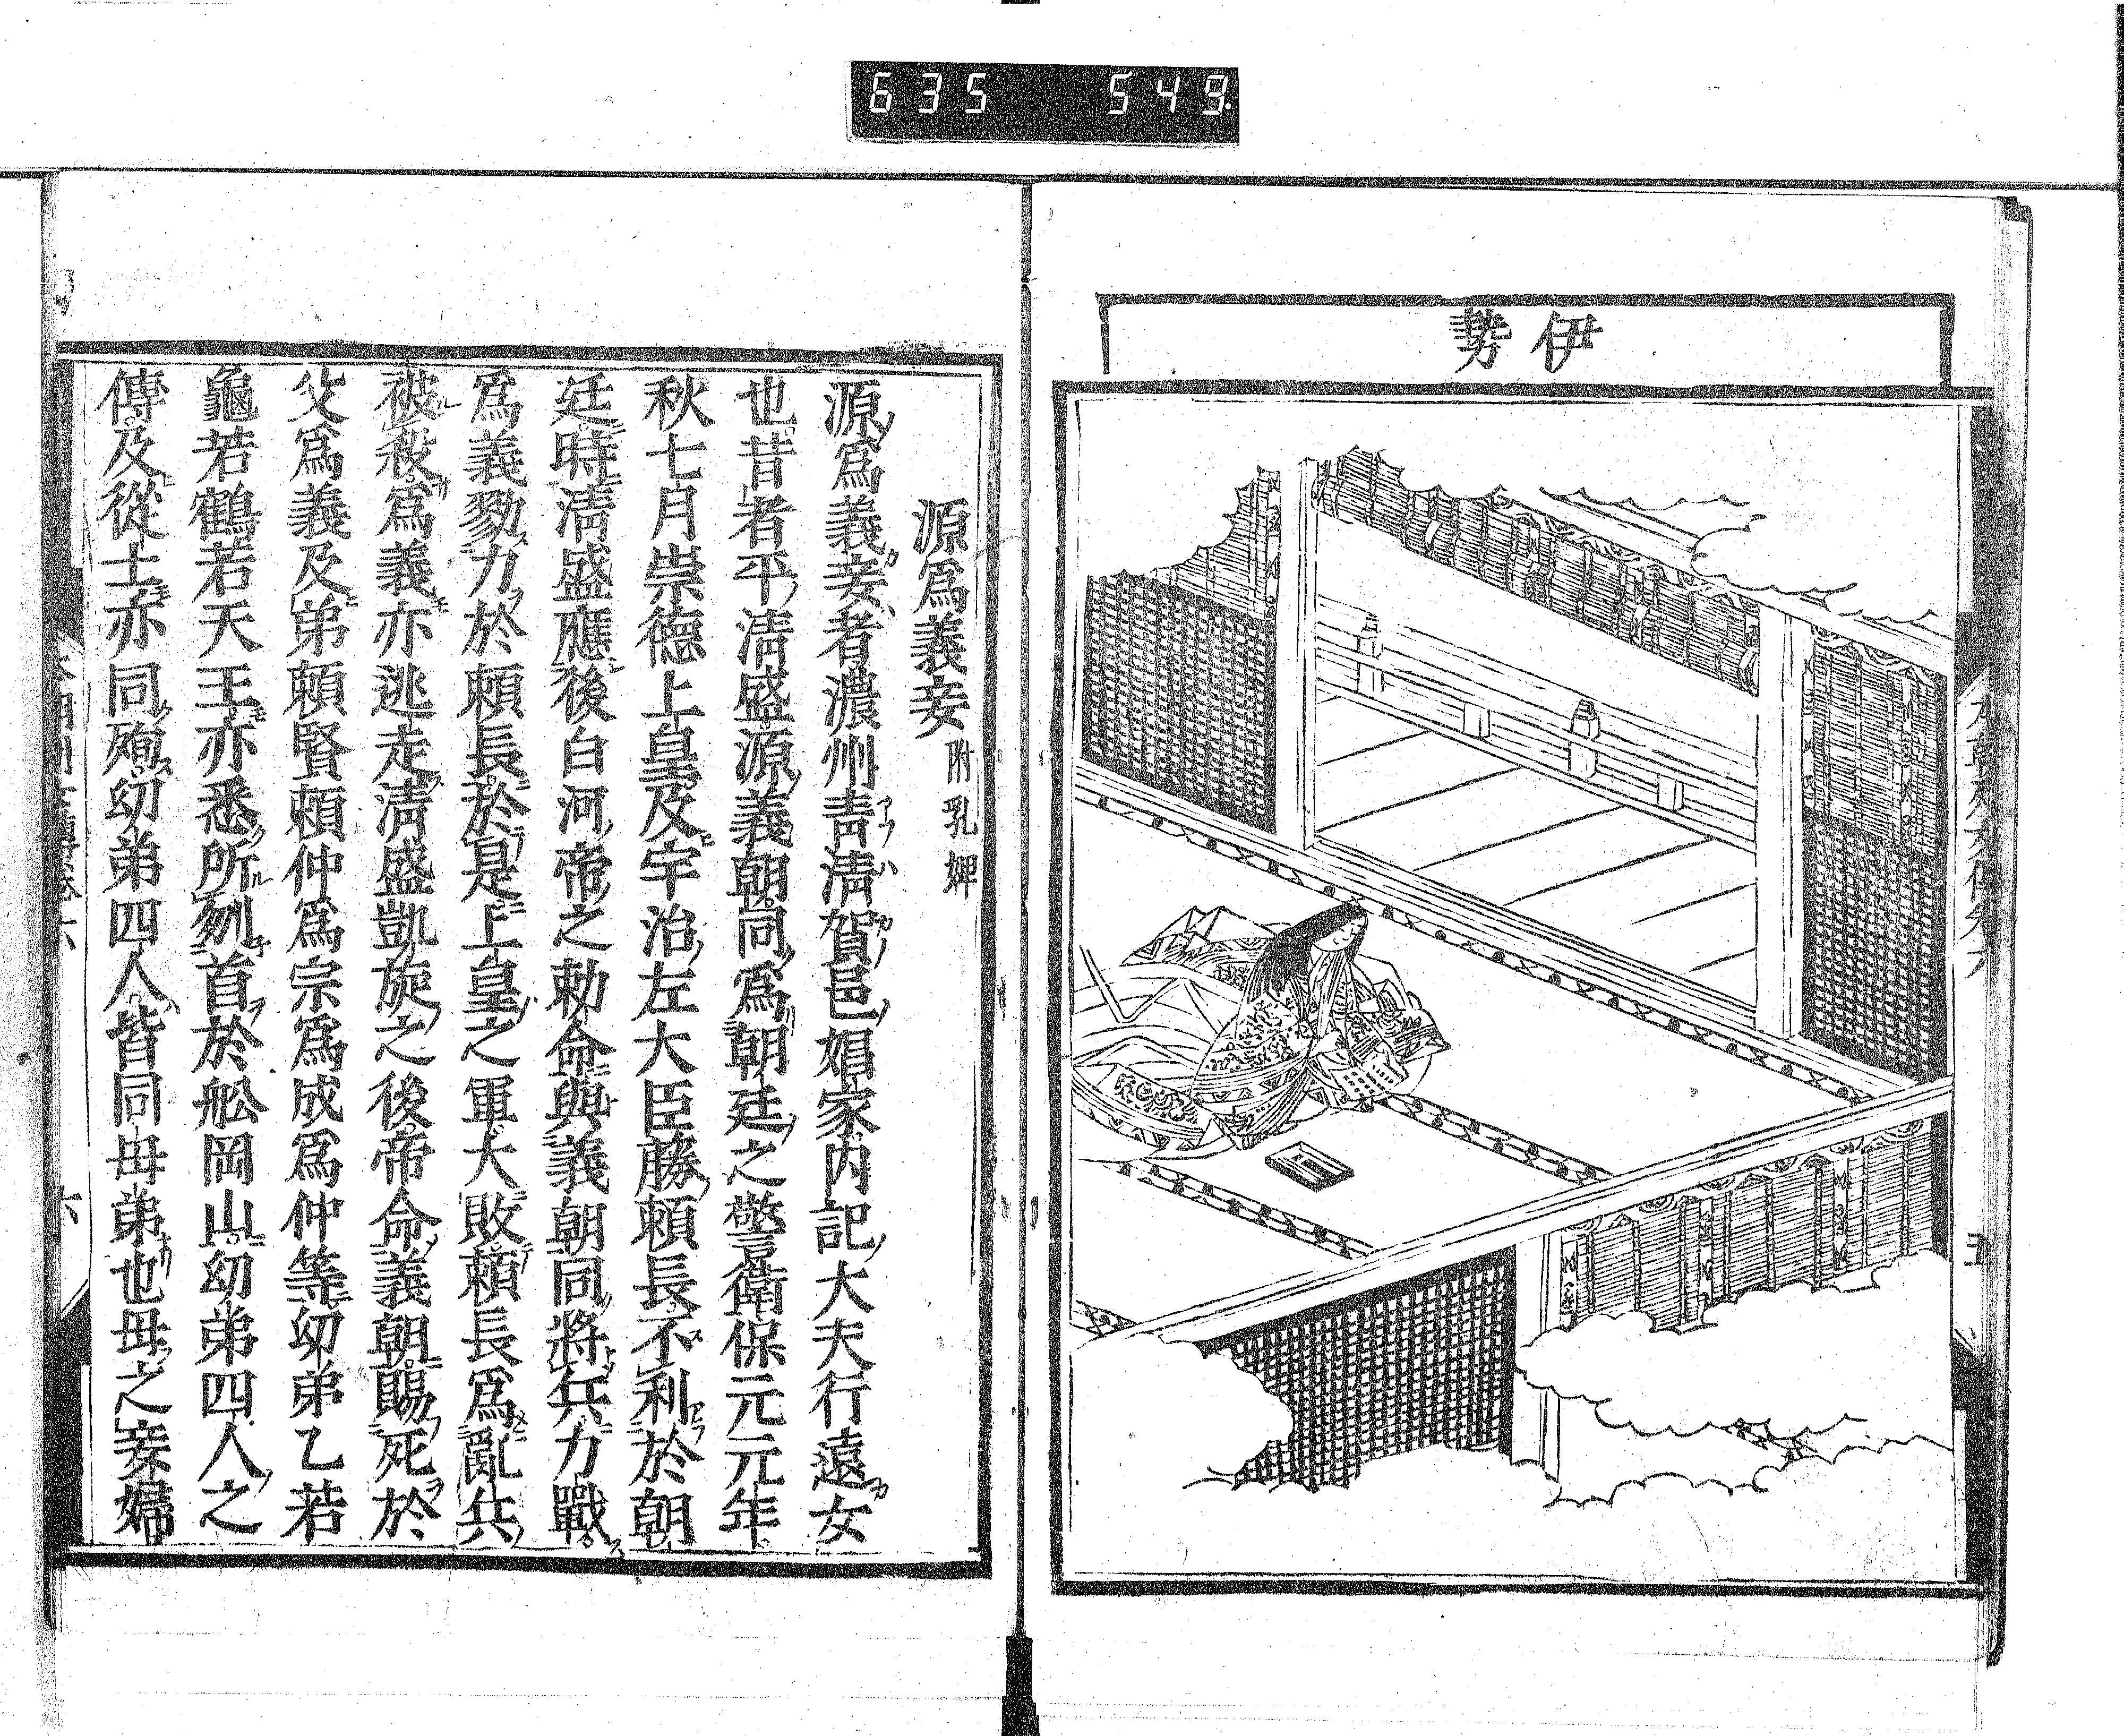 635 549
伊勢
五
源爲義妾 附乳婢
源爲義妾者濃州靑淸賀邑娼家内記大夫行遠女
也昔者平淸盛源義朝同爲朝廷之警衛保元元年
秋七月崇德上皇及宇治左大臣藤頼長不利於朝
廷時淸盛應後白河帝之勅命與義朝同將兵力戰
爲義勠力於頼長於是上皇之軍大敗頼長爲亂兵
被殺爲義亦逃走淸盛凱旋之後帝命義朝賜死於
父爲義及弟頼賢頼仲爲宗爲成爲仲等幼弟乙若
龜若鶴若天王亦悉所刎首於舩岡山幼弟四人之
傳及從士亦同殉幼弟四人皆同母弟也母之妾婦
六